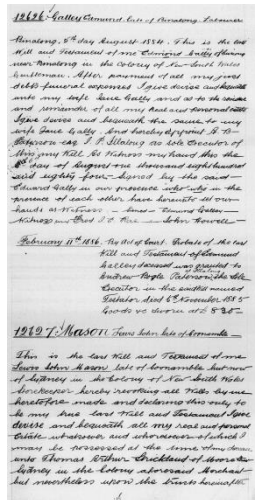 12626 Galley Edmund late of Binalong Farmer
Binalong, 5th day August 1884. This is the last
Will and Testament of me Edmond Galley of Binalong
near Binalong in the Colony of New South Wales
Gentleman. After payment of all my just
debts funeral expenses I give devise and bequeath
unto my wife Jane Gally and as to the residue
and remainder of all my Real and personal estate
I give devise and bequeath the same to my
wife Jane Gally. And hereby appoint A. B.
Paterson esq J. P. Illalong as Sole Executor of
this my Will As Witness my hand this the
5th day of August one thousand eight hundred
and eighty four. Signed by the said
Edmund Galley in our presence who in the
presence of each other have hereunto set our
hands as Witness — Edmund Galley
Witness John Howell
February 11th 1886. By Act of Court. Probate of the last
Will and Testament of Edmund
Galley deceased was granted to
Andrew Bogle Paterson of Illalong the Sole
Executor in the said Will named
Testator died 6th November 1885
Goods sworn at £ 825
12627 Mason Lewis John late of Coonamble
This is the last Will and Testament of me
Lewis John Mason late of Coonamble but now
of Sydney in the Colony of New South Wales
Storekeeper hereby revoking all Wills by me
heretofore made and declaring this only to
be my true last Will and Testament I give
devise and bequeath all my real and personal
Estate whatsoever and wheresoever of which I
may be possessed at the time of my decease
unto Thomas Arthur Strickland of
Sydney in the Colony aforesaid Merchant
but nevertheless upon the trusts hereinafter